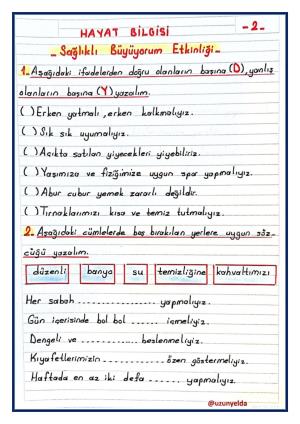 HAYAT BİLGİSİ
-2-
Sağlıklı Büyüyorum Etkinliği
1. Aşağıdaki ifadelerden doğru olanların başına (D), yanlış
olanların başına (Y) yazalım.
( ) Erken yatmalı, erken kalkmalıyız.
( ) Sık sık uyumalıyız.
( ) Açıkta satılan yiyecekleri yiyebiliriz.
( ) Yaşımıza ve fiziğimize uygun spor yapmalıyız.
( ) Abur cubur yemek zararlı değildir.
( ) Tırnaklarımızı kısa ve temiz tutmalıyız.
2. Aşağıdaki cümlelerde boş bırakılan yerlere uygun söz-
cüğü yazalım.
düzenli banyo su temizliğine kahvaltımızı
Her sabah .................. yapmalıyız.
Gün içerisinde bol bol .......... içmeliyiz.
Dengeli ve .............. beslenmeliyiz.
Kıyafetlerimizin .............. özen göstermeliyiz.
Haftada en az iki defa ........ yapmalıyız.
@uzunyelda